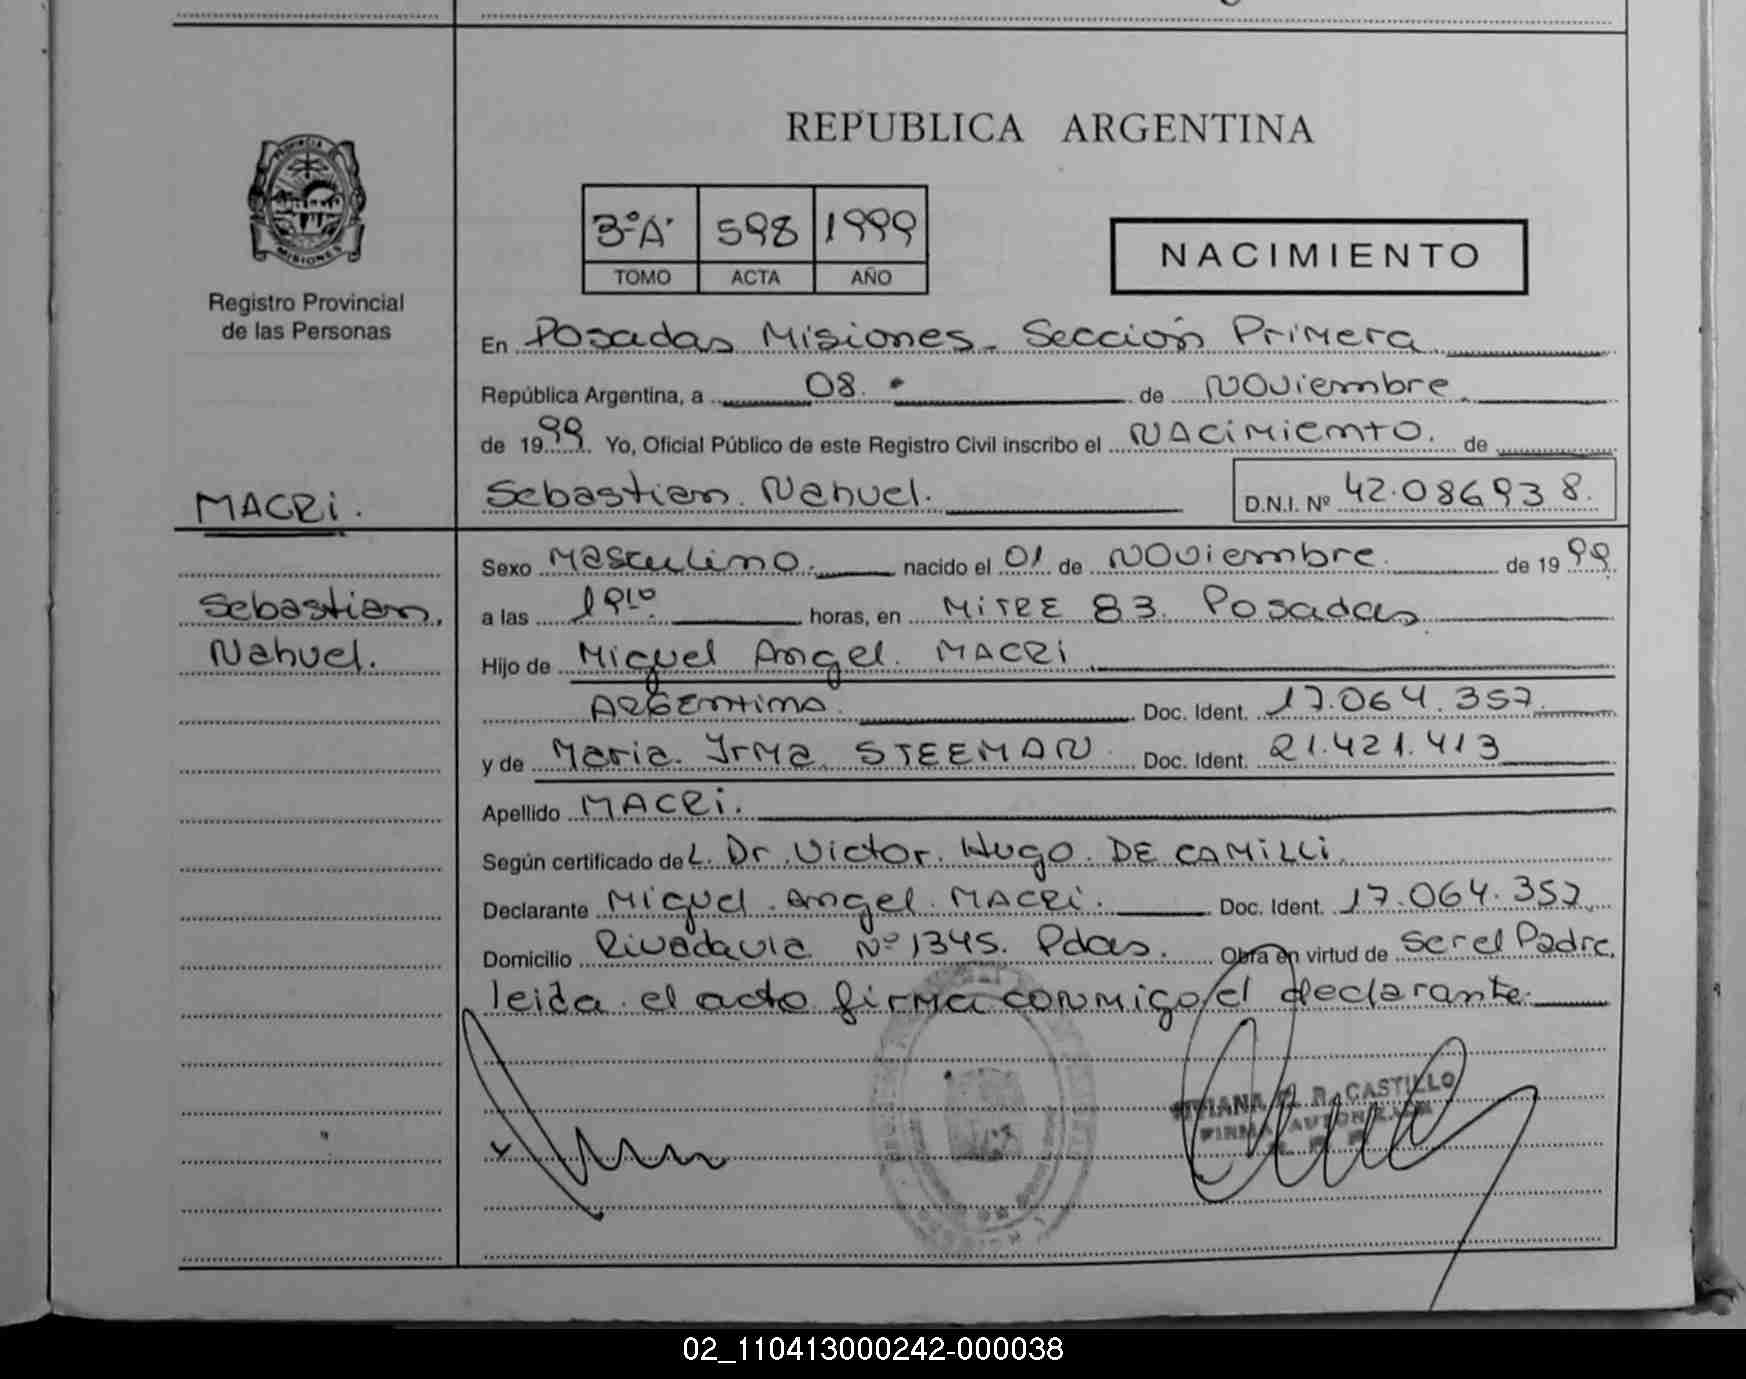 REPUBLICA ARGENTINA
PROVINCIA DE
MISIONES
Registro Provincial
de las Personas
3ºA 598 1999
TOMO ACTA AÑO
NACIMIENTO
En Posadas Misiones - Sección Primera
República Argentina, a 08. de Noviembre
de 1999. Yo, Oficial Público de este Registro Civil inscribo el Nacimiento. de
MACRi.
Sebastian. Nahuel. D.N.I. Nº 42.086938.
Sexo Masculino. nacido el 01 de Noviembre. de 1999
Sebastian,
a las 19¹⁰ horas, en MiTRE 83. Posadas
Nahuel.
Hijo de Miguel Angel. MACRi
ARGENTINO. Doc. Ident. 17.064.357.
y de Maria. Irma STEEMAN Doc. Ident. 21.421.413
Apellido MACRi.
Según certificado deL. Dr. Victor. Hugo. DE CAMiLLi.
Declarante Miguel. Angel. MACRi. Doc. Ident. 17.064.357.
Domicilio Rivadavia Nº 1345. Pdas. Obra en virtud de ser el Padre,
leida el acto firma conmigo el declarante.
R. CASTILLO
FIRMA AUTORIZADA
02_110413000242-000038